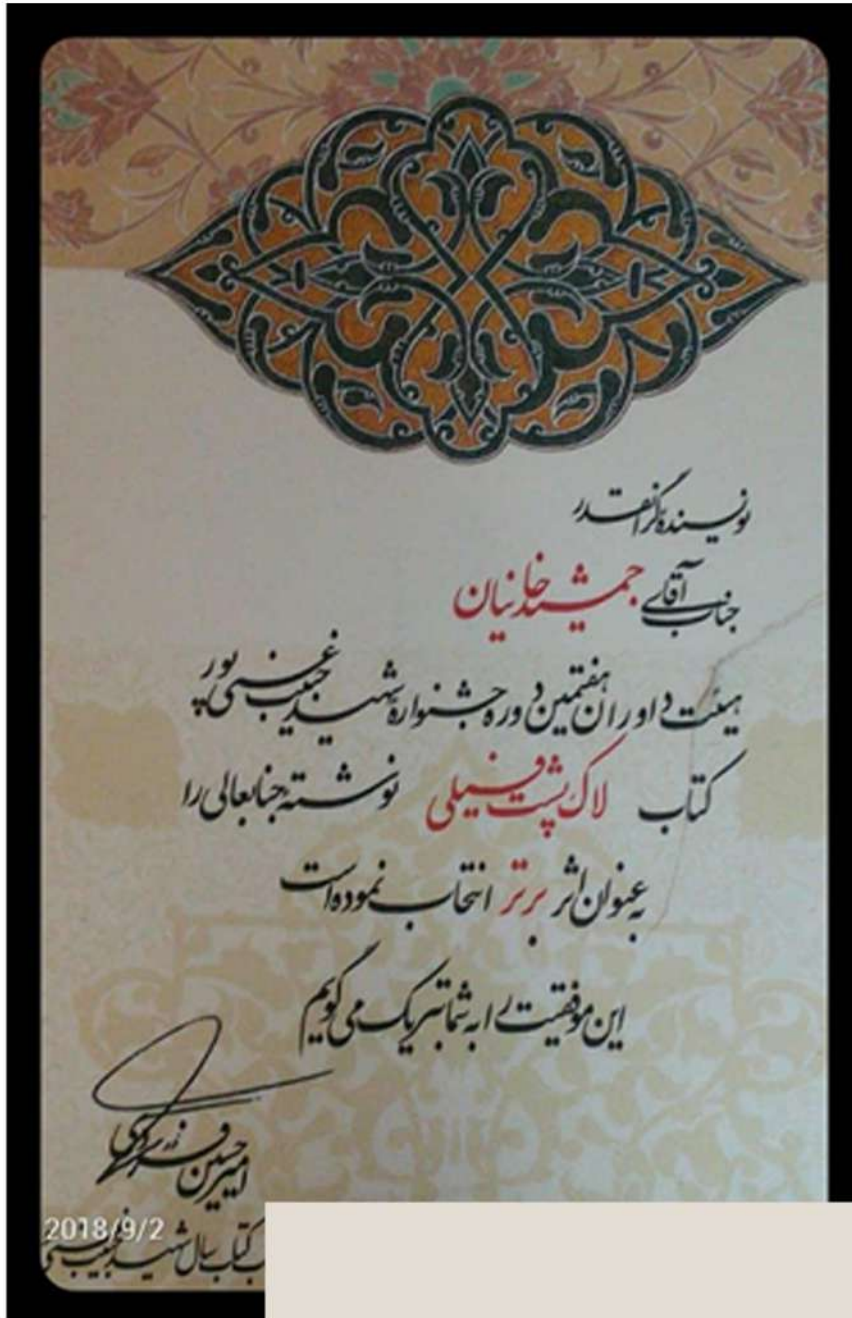 نویسندهٔ گرانقدر
جناب آقای جمشید خانیان
هیئت داوران هفتمین دوره جشنوارهٔ شهید حبیب غنی‌پور
کتاب لاک‌پشت فیلی نوشتهٔ جنابعالی را
به عنوان اثر برتر انتخاب نموده است
این موفقیت را به شما تبریک می‌گویم
امیرحسین فردی
2018/9/2
کتاب سال شهید حبیب